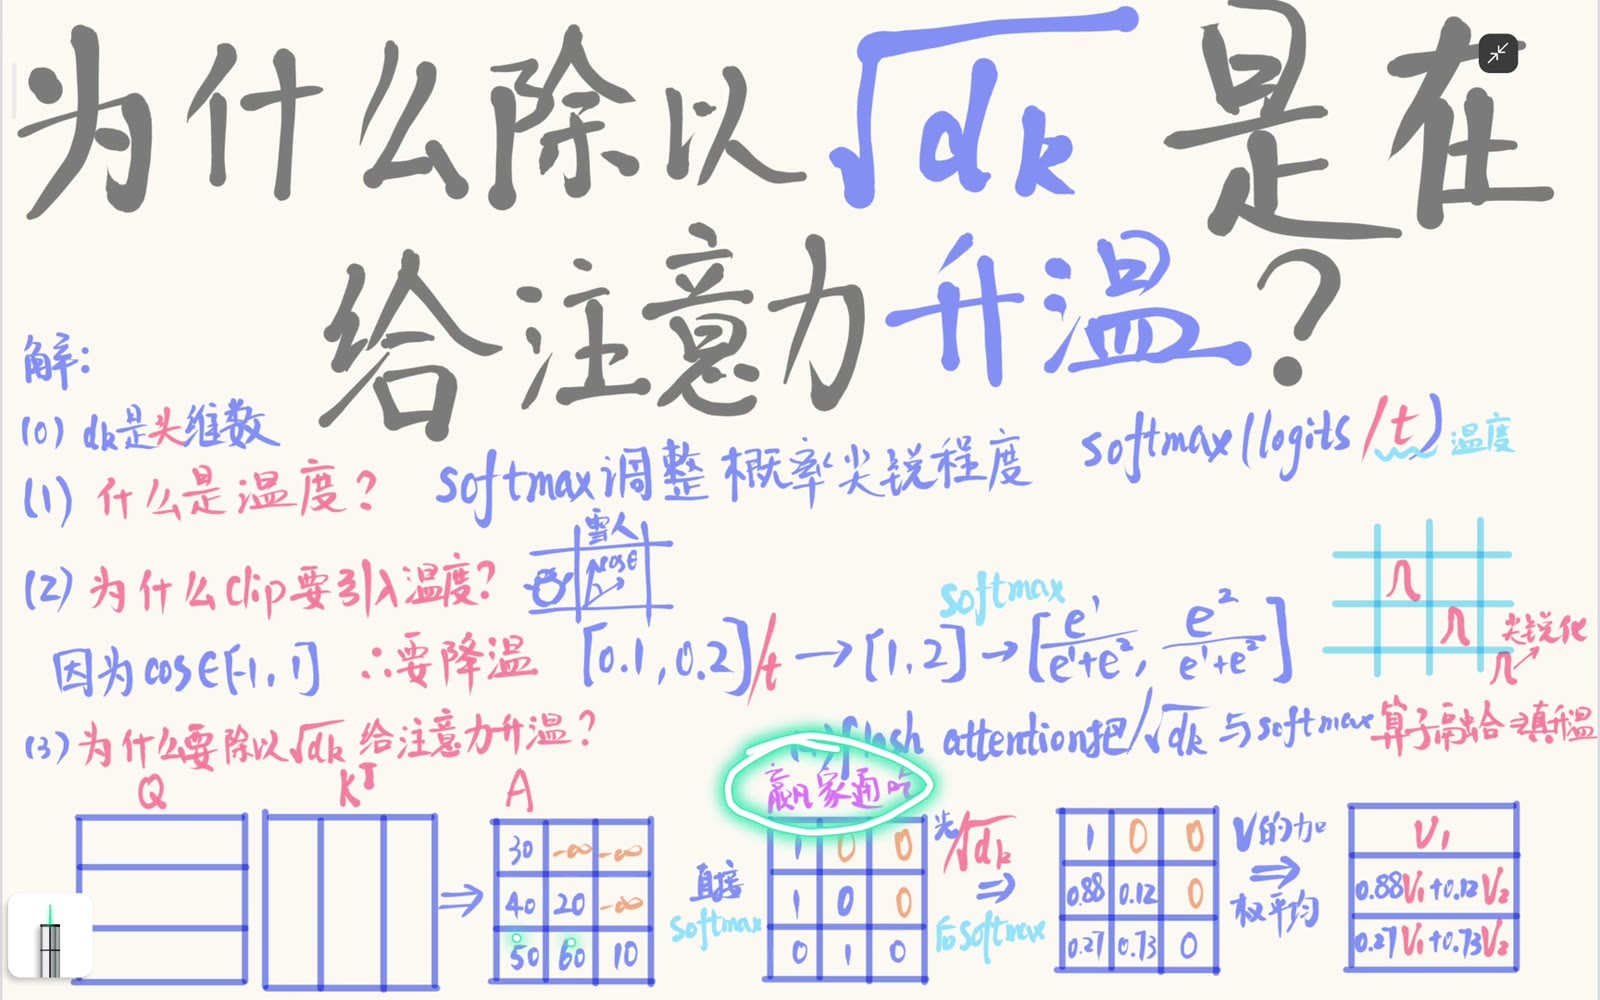 为什么除以√dk是在
给注意力升温？
解：
(0) dk是头维数
(1) 什么是温度？ softmax调整概率尖锐程度 softmax(logits/t) 温度
雪人
cosθ
(2) 为什么Clip要引入温度？
softmax
因为cos∈[-1,1] ∴要降温 [0.1,0.2]/t → [1,2] → [e¹/(e¹+e²), e²/(e¹+e²)]
尖锐化
(3) 为什么要除以√dk给注意力升温？
flash attention把/√dk与softmax算子融合⇒真升温
Q K^T A
赢家通吃
30 -∞ -∞
40 20 -∞
50 60 10
直接
softmax
1 0 0
1 0 0
0 1 0
先/√dk
⇒
后softmax
1 0 0
0.88 0.12 0
0.27 0.73 0
V的加
⇒
权平均
V₁
0.88V₁+0.12V₂
0.27V₁+0.73V₂